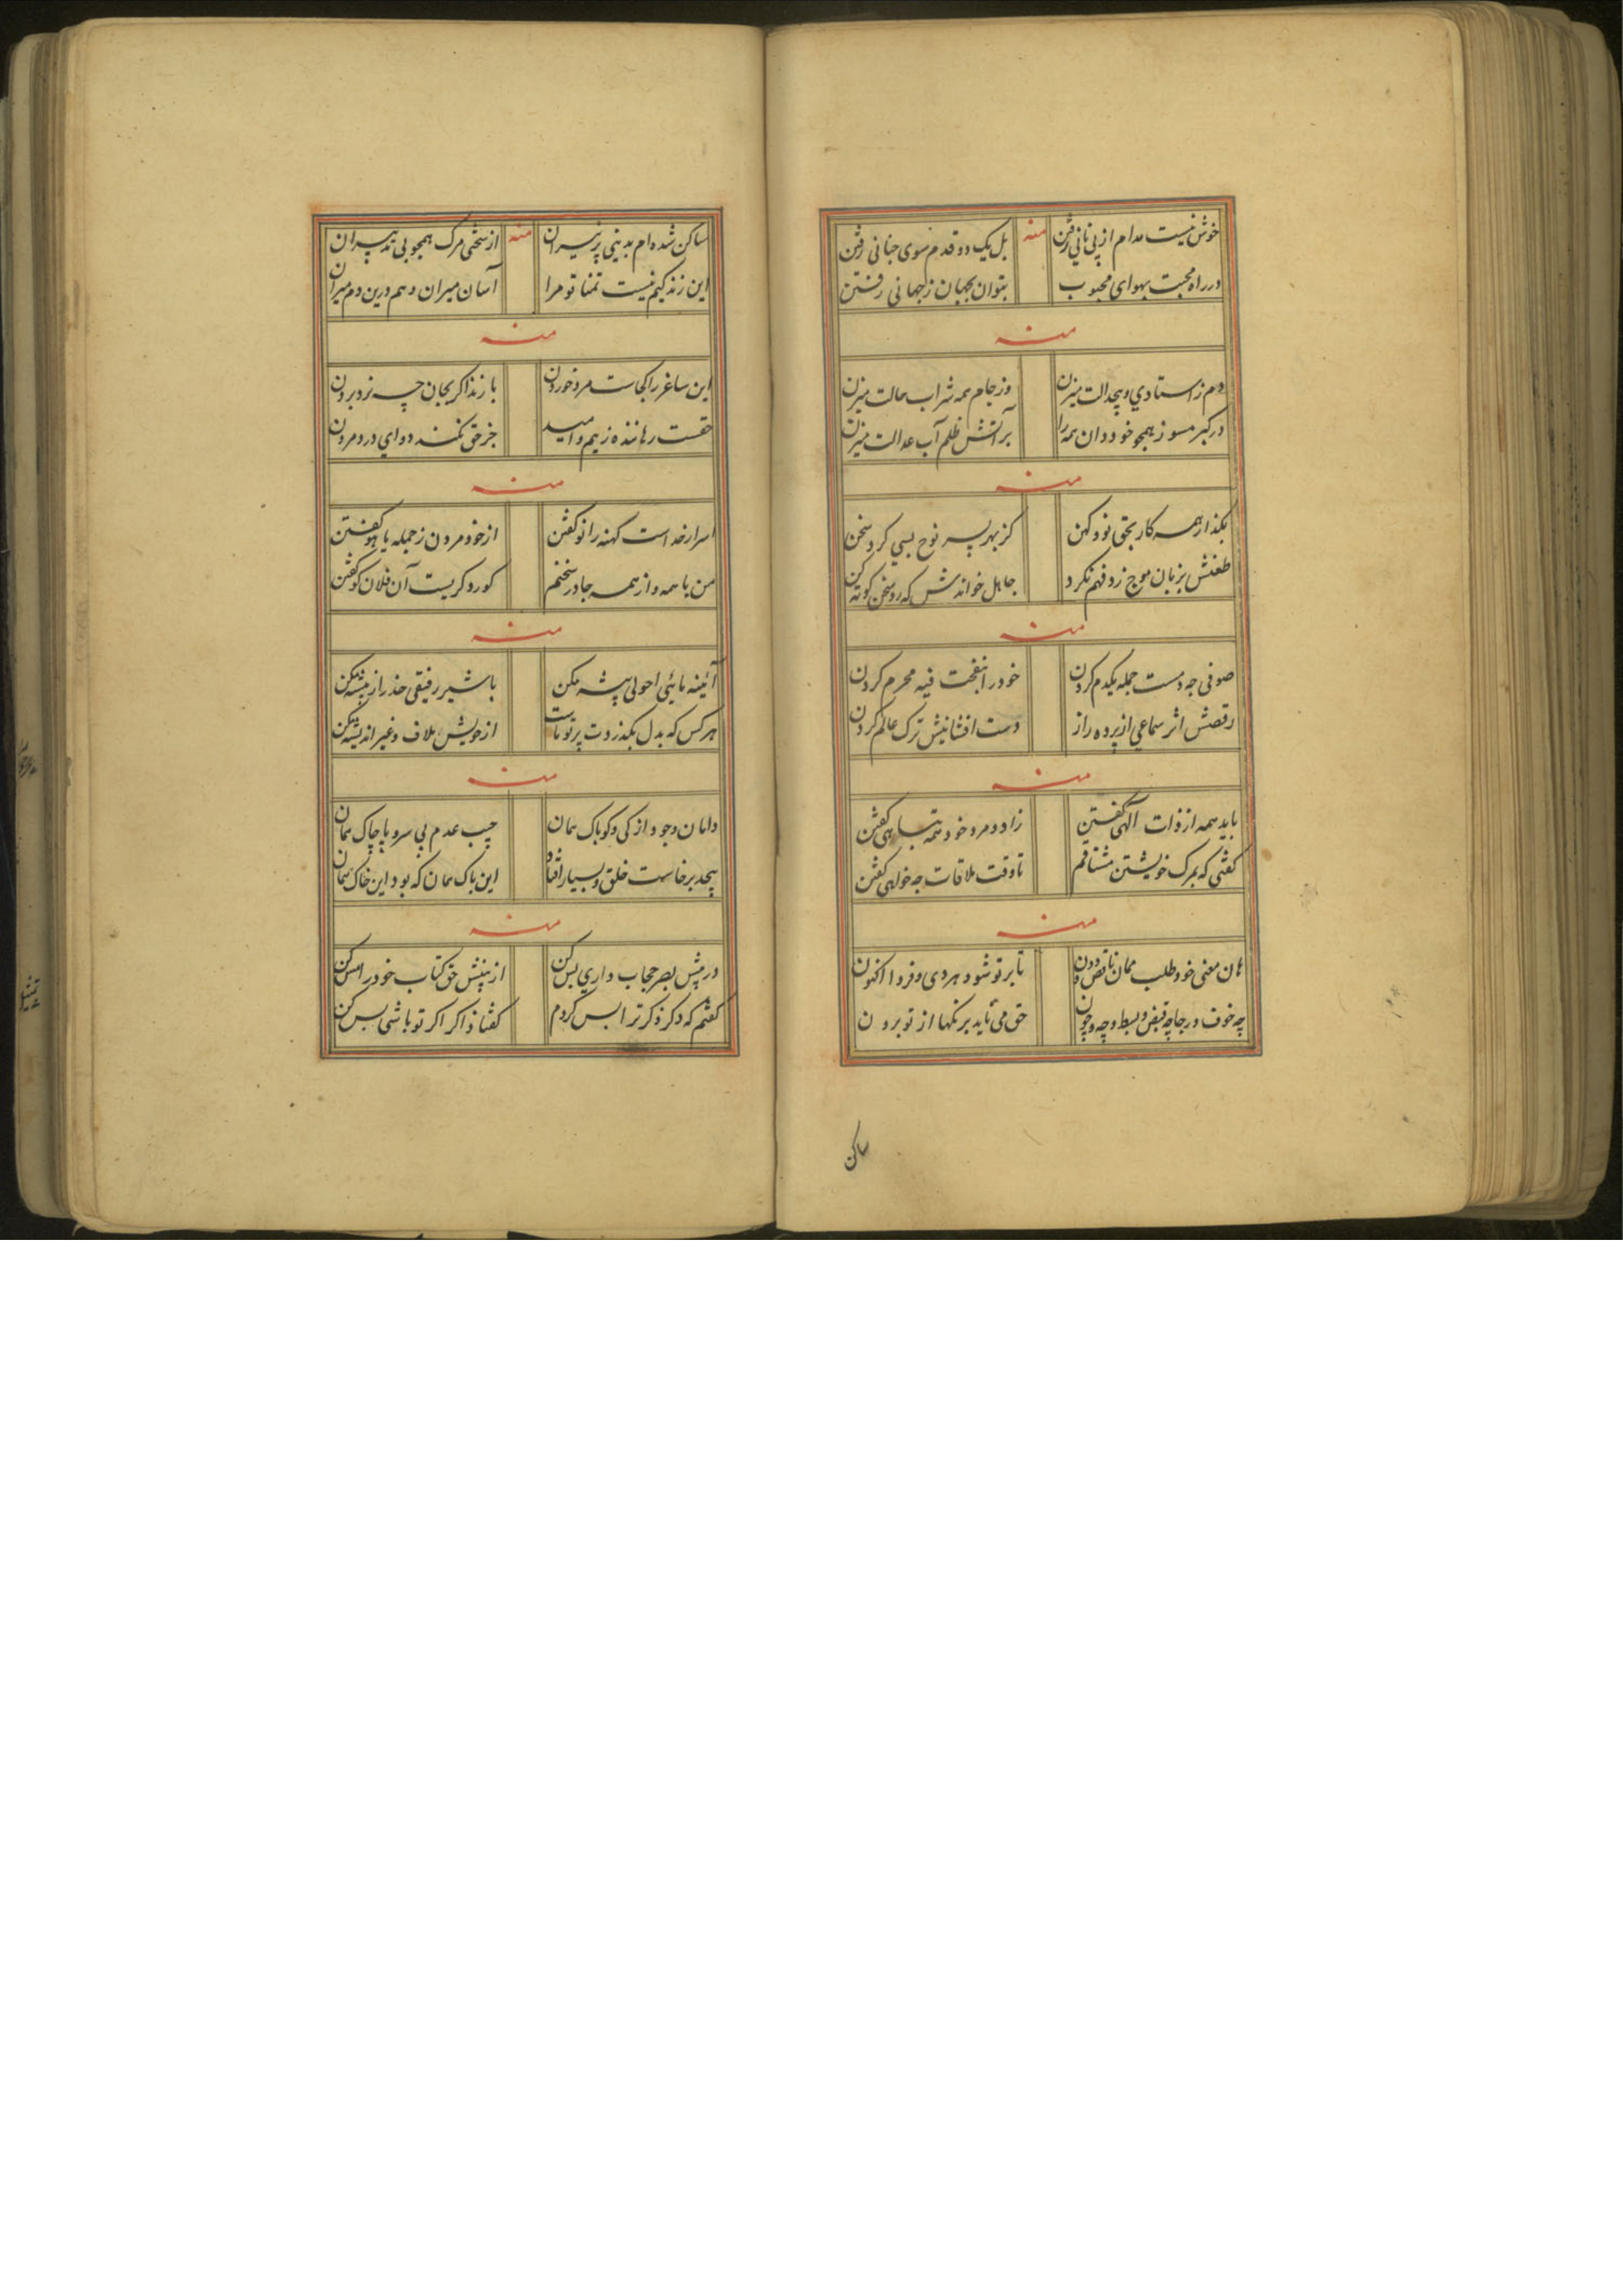 خوش نیست مدام از پی نانی رفتن منه بل یک دو قدم سوی جنانی رفتن
در راه محبت بهوای محبوب بتوان بجهان ز جهانی رفتن
منه
دم ز استادی و بیجدالت میزن وز جام همه شراب حالت میزن
در کبر مسوز همچو خود دان همه را بر آتش ظلم آب عدالت میزن
منه
بگذار همه کار بحق نو و کهن کز بهر پسر نوح بسی کرد سخن
طغنش بزبان موج زد فهم نکرد جاهل خواندش که رو سخن کوته کن
منه
صوفی چه دست جمله یکدم کردن خود را بنفخت فیه محرم کردن
رقصش اثر سماعی از پرده راز دست افشانیش ترک عالم کردن
منه
باید همه از ذات آلهی گفتن زاد و مرد خود همه تباهی گفتن
گفتی که بمرک خویشتن مشتاقم تا وقت ملاقات چه خواهی گفتن
منه
هان معنی خود طلب ممان ناقص و دون تا بر تو شود هر دی و فردا اکنون
چه خوف و رجا چه قبض و بسط و چه و چون حق می نماید برنگها از تو برون
ساکن
ساکن شده ام بدینی پر نیران منه از سختی مرگ همچو بی تدبیران
این زندگیم نیست تمنا تو مرا آسان میران و هم درین دم میران
منه
این ساغر را کجاست مرد خوردن یا زنداکر بجان چه نزد بردن
حقست رهاننده ز بیم و امید جز حق نکند دوای درد مردن
منه
اسرار خداست کهنه را نو گفتن از خود مردن ز جمله یا هو گفتن
من با همه و از همه جا در سخنم کور و کریست آن فلان کو گفتن
منه
آئینه مائی احولی پیشه مکن با شیر رفیقی حذر از بیشه مکن
هر کس که بدل بگذردت پرتو تست از خویش ملاف و غیر اندیشه مکن
منه
دامان وجود از کی و کو پاک نمان جیب عدم بی سر و پا چاک نمان
بیحد برخاست خلق و بسیار افتاد این باک نمان که بود این خاک نمان
منه
در پیش بصر حجاب داری پس کن از بینش حق کتاب خود را مس کن
گفتم که دگر ذکر ترا بس کردم گفتا ذاکر اگر تو باشی بس کن